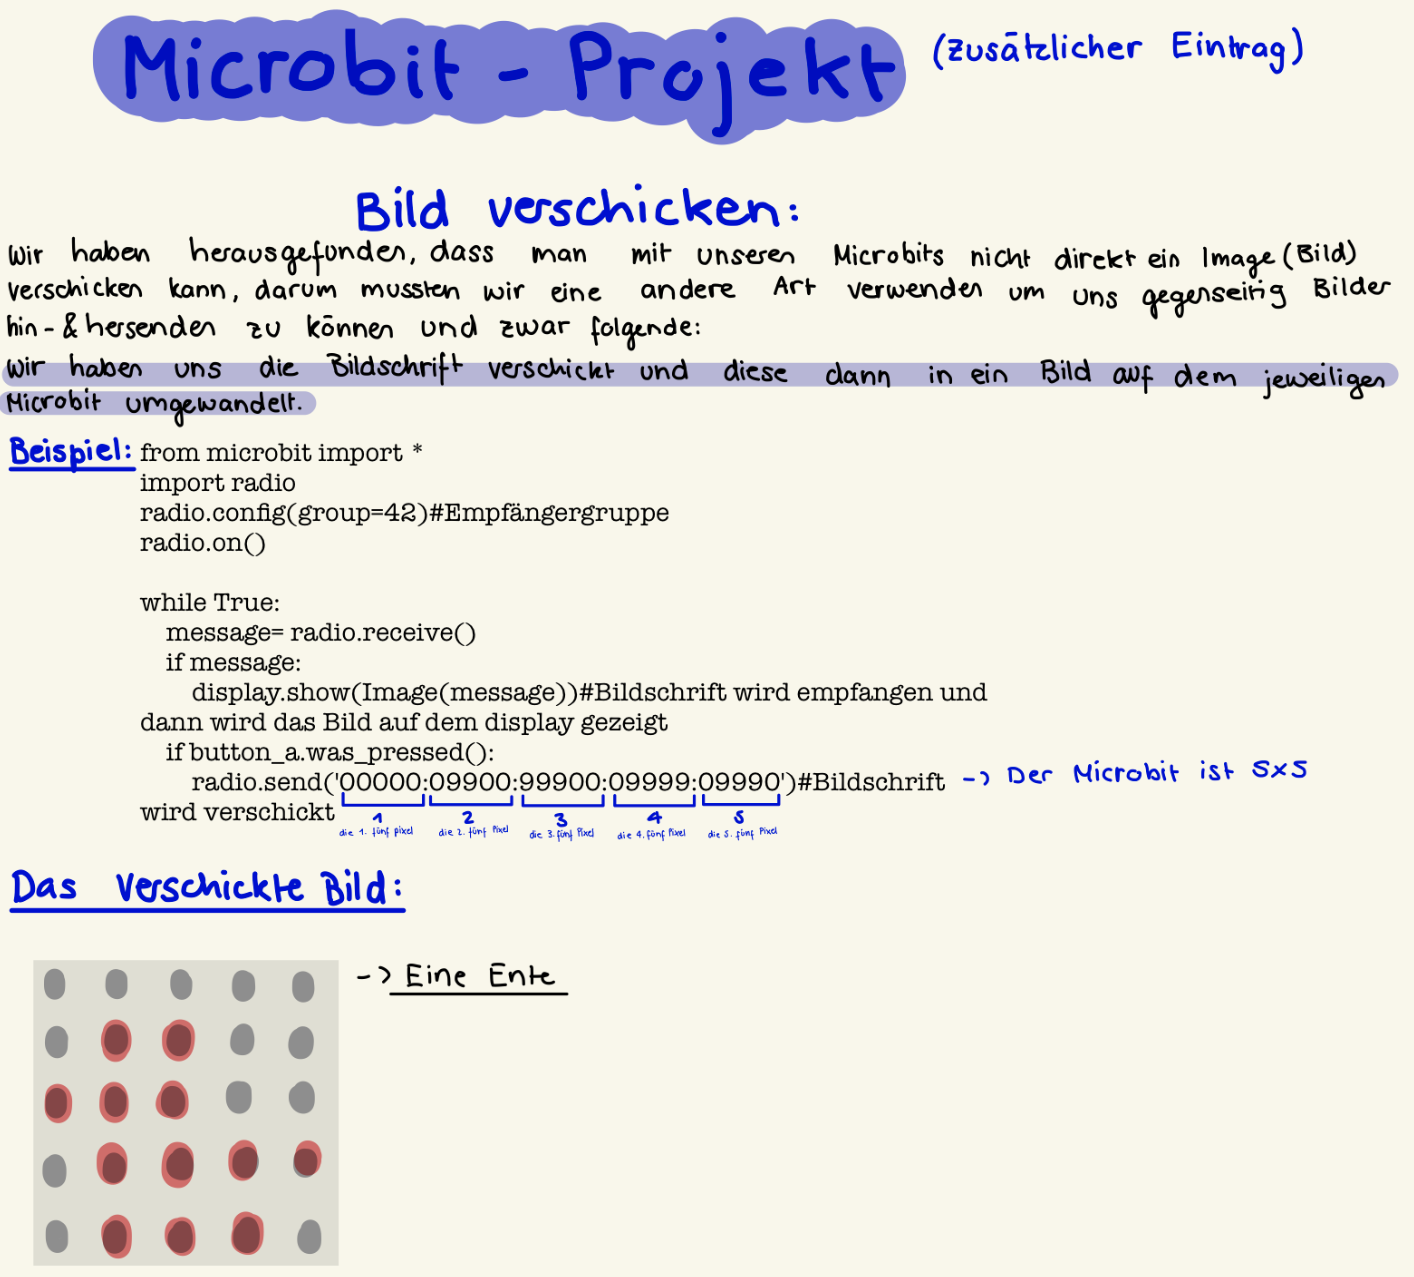 Microbit - Projekt (zusätzlicher Eintrag)
Bild verschicken:
Wir haben herausgefunden, dass man mit unseren Microbits nicht direkt ein Image (Bild)
verschicken kann, darum mussten wir eine andere Art verwenden um uns gegenseitig Bilder
hin- & hersenden zu können und zwar folgende:
Wir haben uns die Bildschrift verschickt und diese dann in ein Bild auf dem jeweiligen
Microbit umgewandelt.
Beispiel: from microbit import *
import radio
radio.config(group=42)#Empfängergruppe
radio.on()
while True:
message= radio.receive()
if message:
display.show(Image(message))#Bildschrift wird empfangen und
dann wird das Bild auf dem display gezeigt
if button_a.was_pressed():
radio.send('00000:09900:99900:09999:09990')#Bildschrift -> Der Microbit ist 5x5
wird verschickt
1 2 3 4 5
die 1. fünf Pixel die 2. fünf Pixel die 3. fünf Pixel die 4. fünf Pixel die 5. fünf Pixel
Das verschickte Bild:
-> Eine Ente